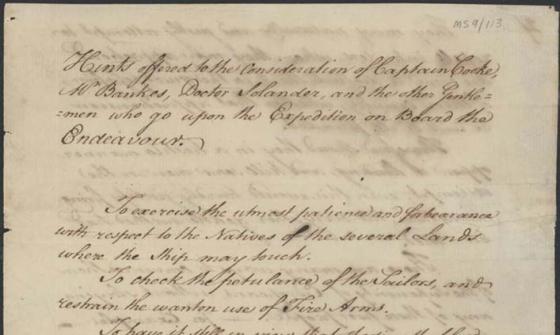 MS 9/113
Hints offered to the consideration of Captain Cooke,
Mr Bankes, Doctor Solander, and the other Gentle=
=men who go upon the Expedition on Board the
Endeavour.
To exercise the utmost patience and forbearance
with respect to the Natives of the several Lands
where the Ship may touch.
To check the petulance of the Sailors, and
restrain the wanton use of Fire Arms.
To have it still in view that